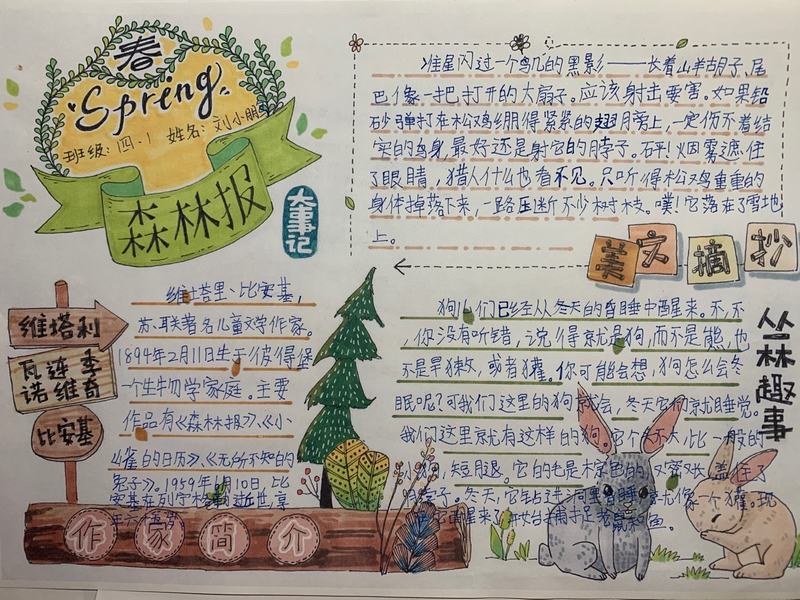 春
Spring
班级:四.1 姓名:刘小朋
森林报
大事记
准星闪过一个鸟儿的黑影——长着山羊胡子、尾
巴像一把打开的大扇子。应该射击要害。如果铅
砂弹打在松鸡绷得紧紧的翅膀上,一定伤不着结
实的鸟身,最好还是射它的脖子。砰!烟雾遮住
了眼睛,猎人什么也看不见。只听得松鸡重重的
身体掉落下来,一路压断不少树枝。噗!它落在了雪地
上。
美文摘抄
维塔利
瓦连季
诺维奇
比安基
维塔里·比安基,
苏联著名儿童文学作家。
1894年2月11日生于彼得堡
一个生物学家庭。主要
作品有《森林报》、《小
山雀的日历》、《无所不知的
兔子》。1959年6月10日,比
安基在列宁格勒逝世,享
作家简介
丛林趣事
狗儿们已经从冬天的昏睡中醒来。不,不
,你没有听错,说得就是狗,而不是熊,也
不是旱獭,或者獾。你可能会想,狗怎么会冬
眠呢?可我们这里的狗就会,冬天它们就睡觉。
我们这里就有这样的狗。它个头不大,比一般的
小狗,短月退。它的毛是棕色的,又密
冬天,它钻进洞里昏睡,就像一个獾。现
它醒来了